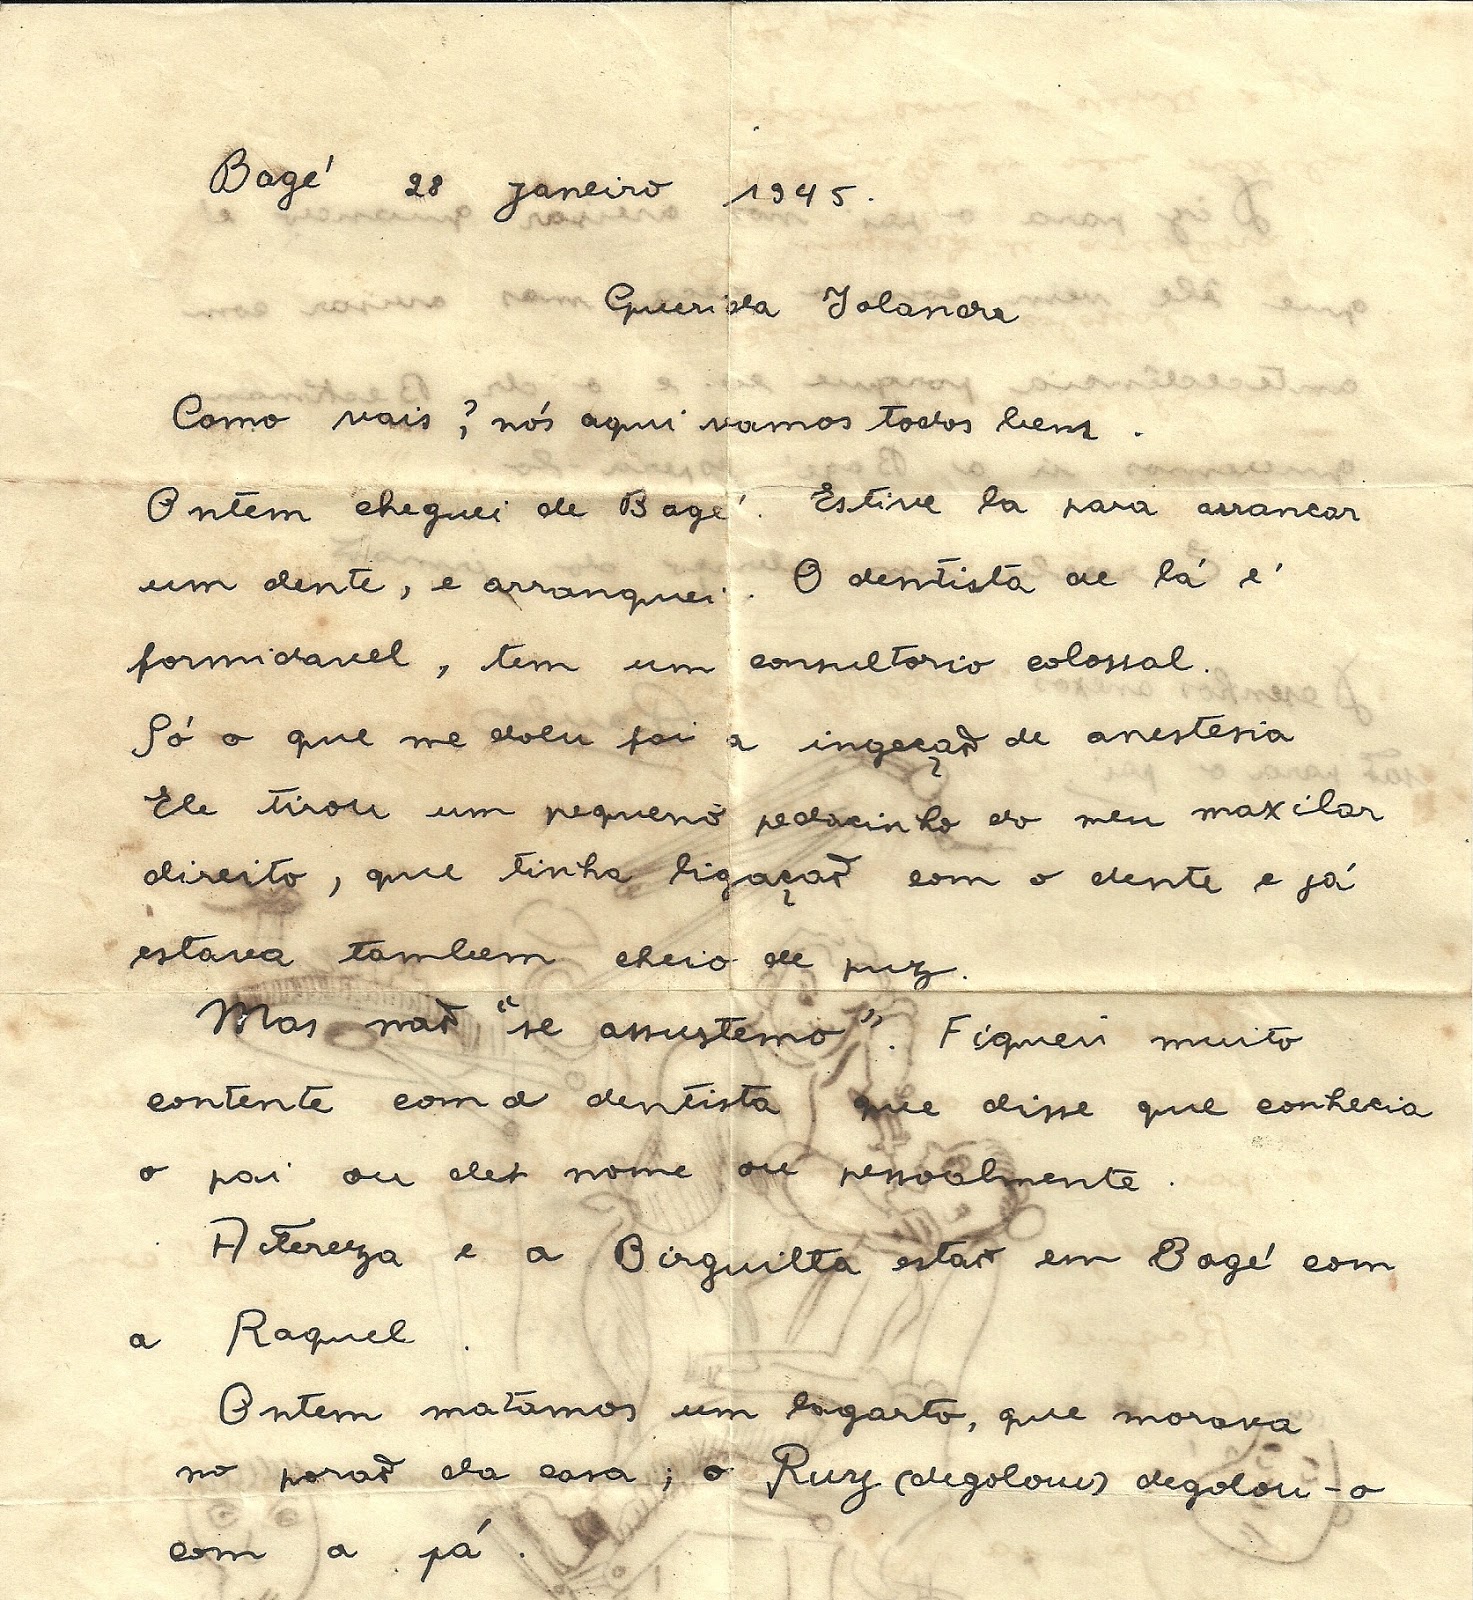 Bagé 28 janeiro 1945.
Querida Iolanda
Como vais ? nós aqui vamos todos bem .
Ontem cheguei de Bagé. Estive la para arrancar
um dente, e arranquei . O dentista de lá é
formidavel, tem um consultorio colossal.
Só o que me doeu foi a ingeçaõ de anestesia
Ele tirou um pequeno pedacinho do meu maxilar
direito, que tinha ligaçaõ com o dente e já
estava tambem cheio de puz.
Mas naõ "se assustemo". Fiquei muito
contente com o dentista que disse que conhecia
o pai ou de nome ou pessoalmente .
A Tereza e a Birguitta estaõ em Bagé com
a Raquel .
Ontem matamos um lagarto, que morava
no poraõ da casa ; o Ruy (degolou) degolou-o
com a pá .